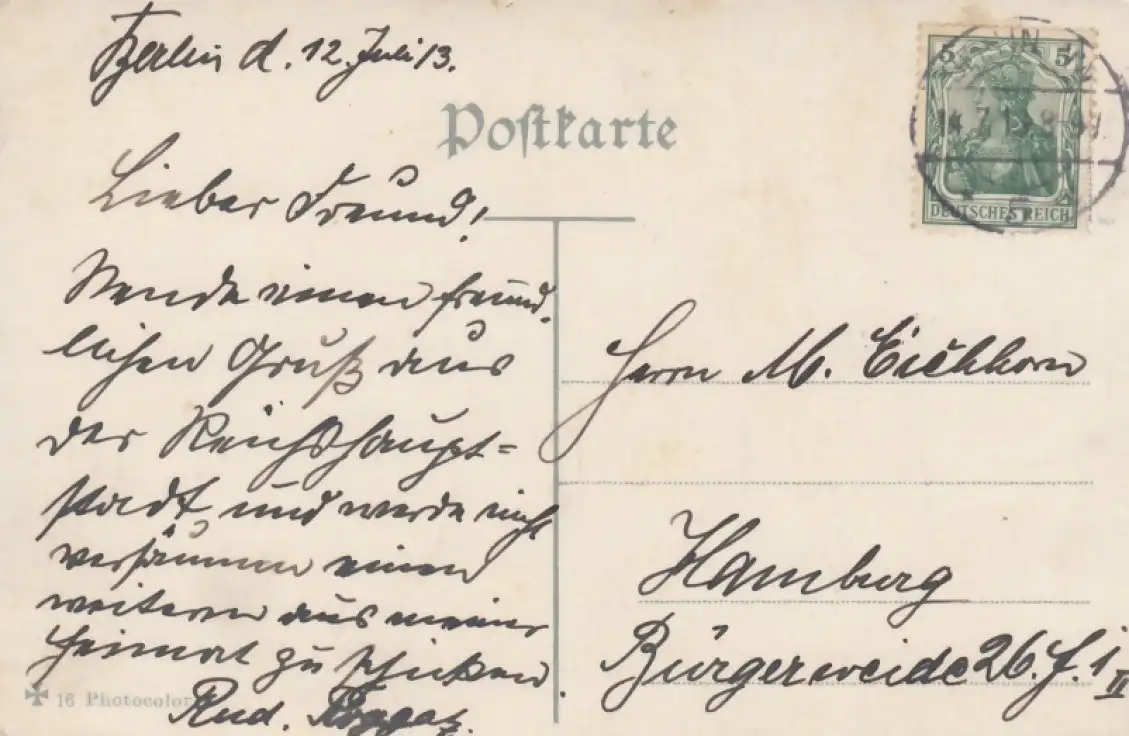 Berlin d. 12. Juli 13.
Postkarte
5 5
14.7.13. 8-9N
DEUTSCHES REICH
5
Lieber Freund!
Sende einen freund-
lichen Gruß aus
der Reichshaupt=
stadt und werde nicht
versäumen einen
weiteren aus meiner
Heimat zu schicken.
Rud.
16 Photocolor
Herrn M. Eichhorn
Hamburg
Bürgerweide 26. f. 1
II